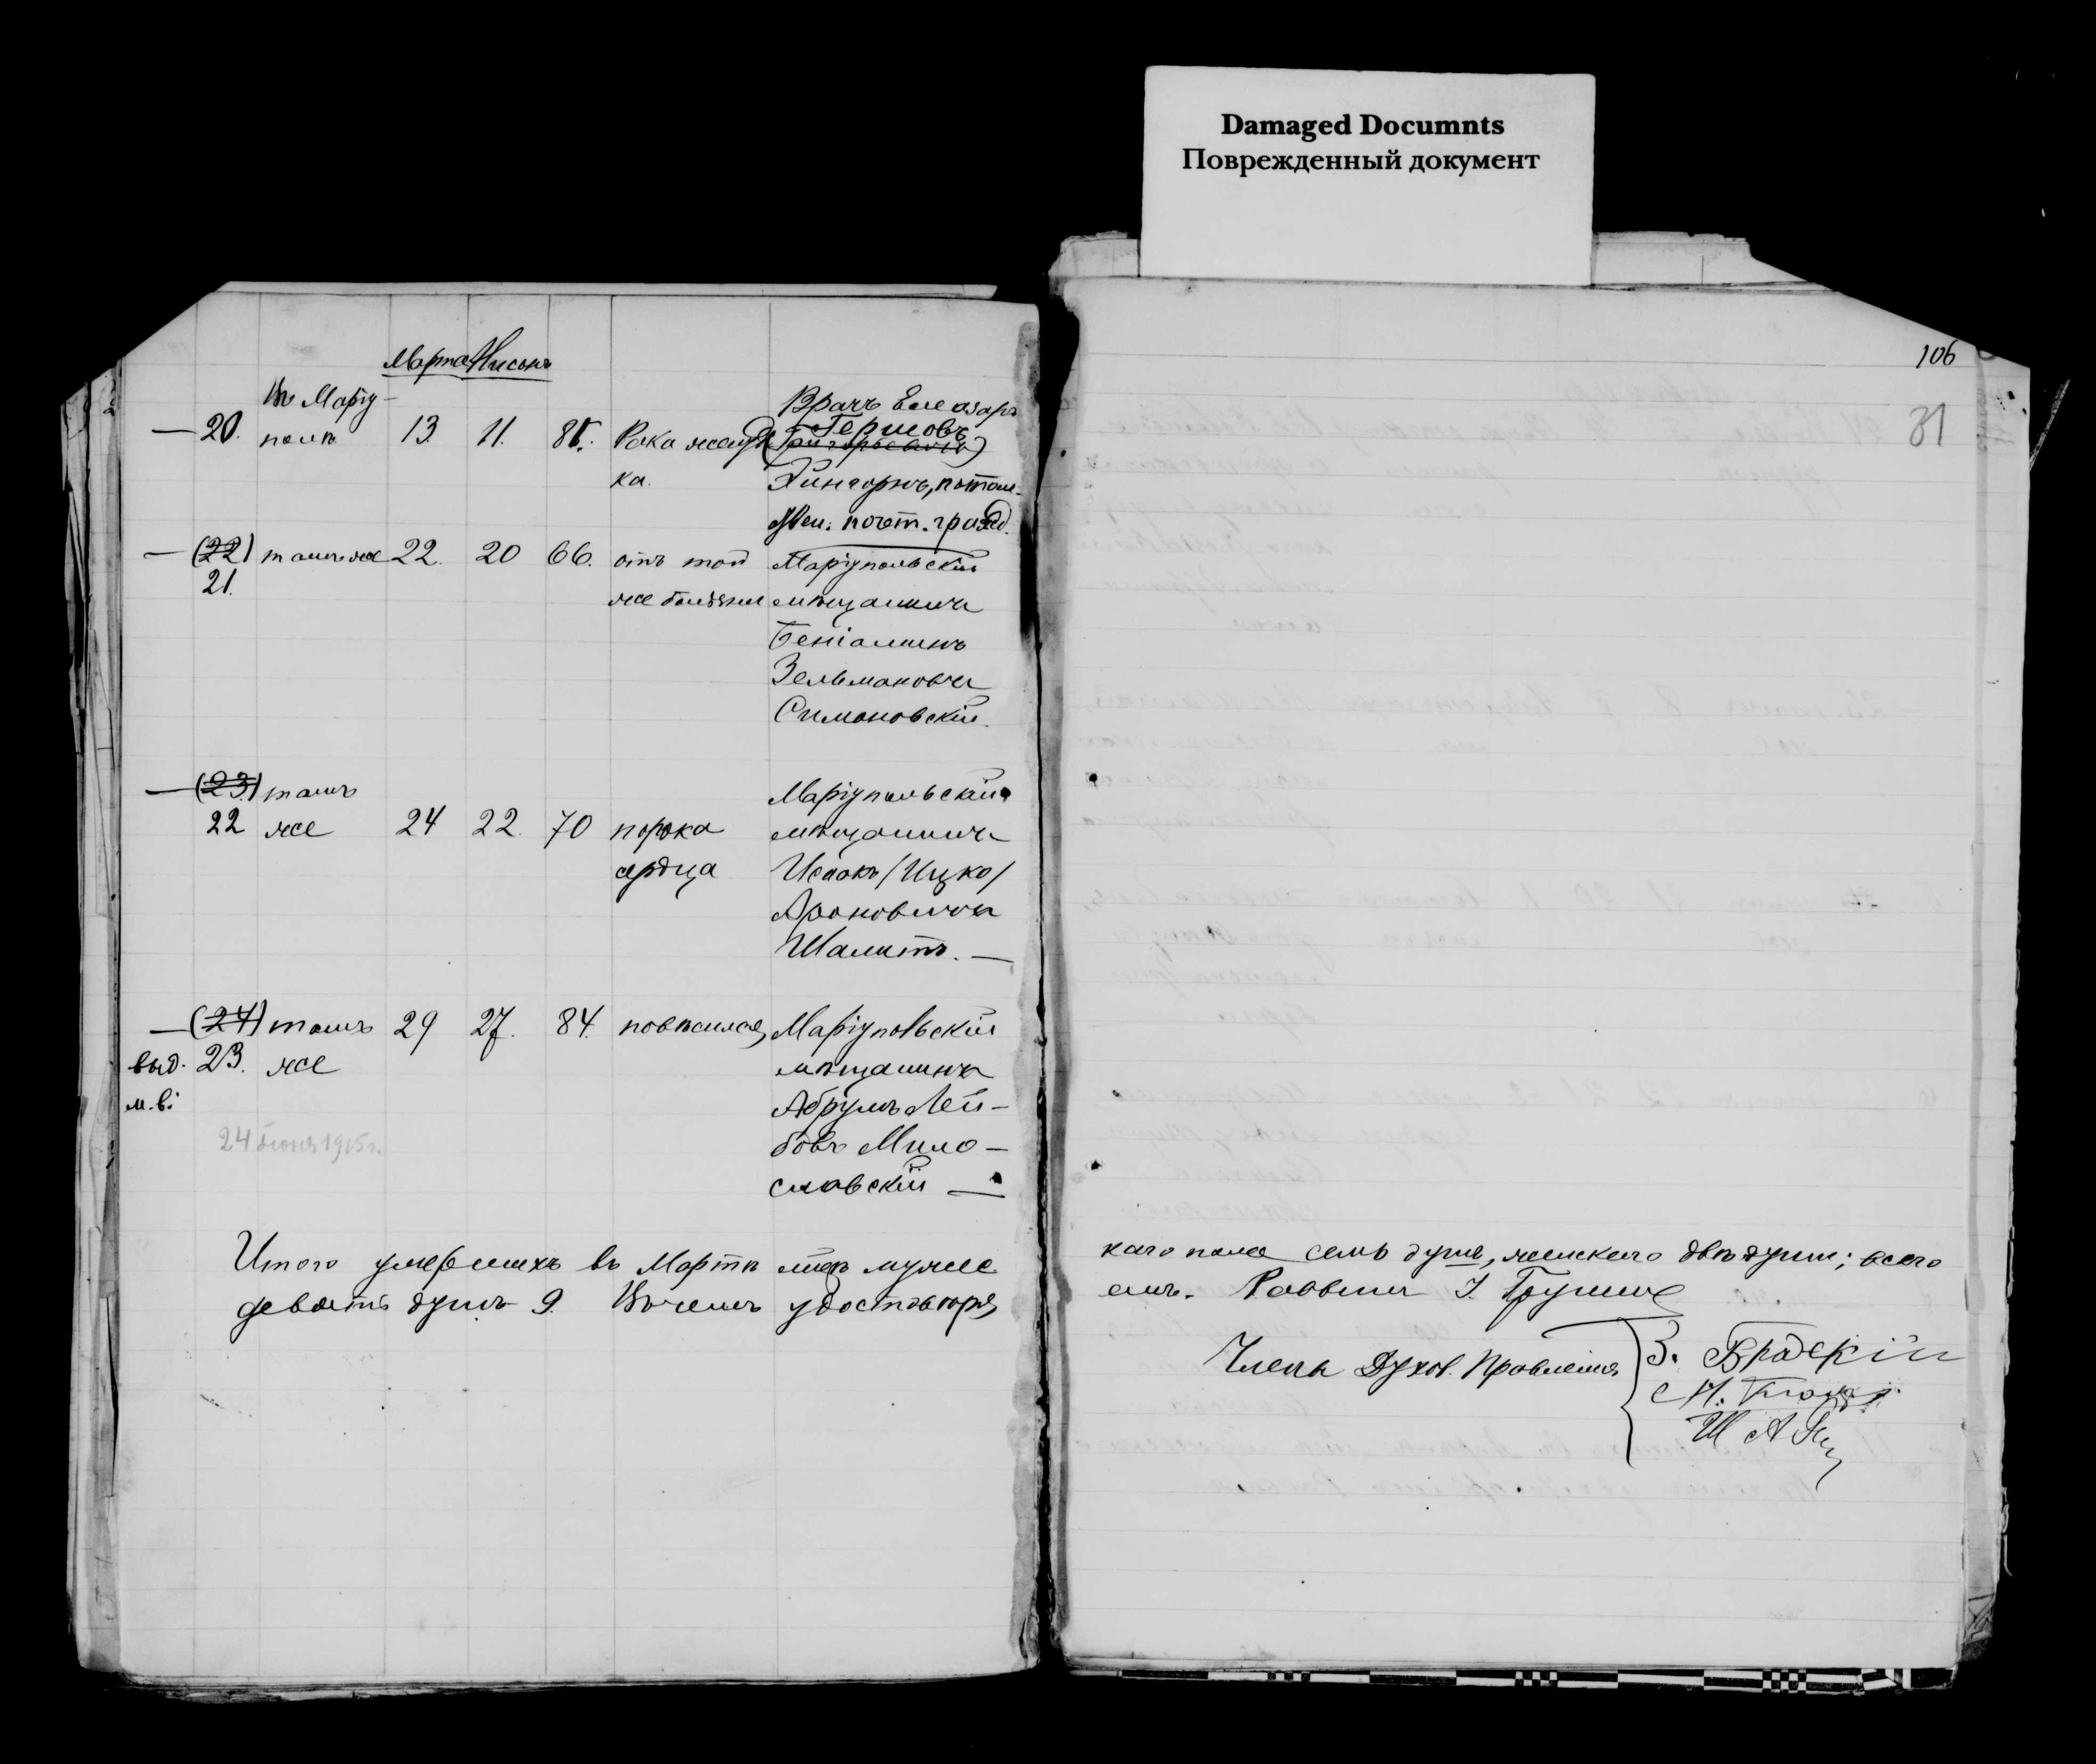 Damaged Documnts
Поврежденный документ
106
31
Марта Нисонъ
Въ Маріу-
20. полѣ 13. 11. 85. Рака желуд
ка.
Врачъ Елеазаръ
Гершовъ
(Григорьевичъ)
Хингорнъ, потом-
ствен. почт. гражд.
(22) тамъ же 22. 20 66. отъ той
21. же болѣзни
Маріупольскій
мѣщанинъ
Беніаминъ
Зельмановъ
Симоновскій.
(23) тамъ
22 же 24 22. 70 порока
сердца
Маріупольскій
мѣщанинъ
Исаакъ /Ицко/
Ароновичъ
Шалитъ. —
(24) тамъ 29 27. 84. повѣсился
выд. 23. же
м. в.
24 Іюня 1915г.
Маріупольскій
мѣщанинъ
Абрумъ Лей-
бовъ Мило-
славскій —
Итого умершихъ въ Мартѣ м-цѣ мужес
девять душъ 9. Въ чемъ удостовѣря
каго пола семь душъ, женскаго двѣ души; всего
емъ. Раввинъ
Члены Духов. Правленія
З. Бродскій